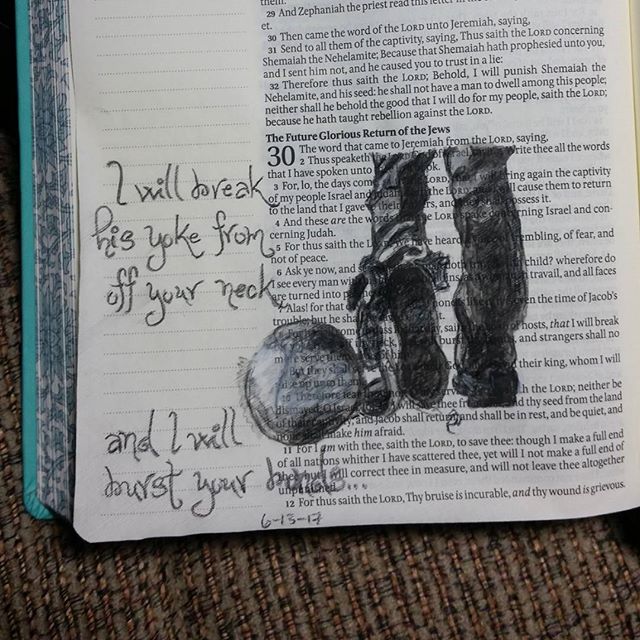 them.
29 And Zephaniah the priest read this letter in
et.
30 Then came the word of the LORD unto Jeremiah, saying,
31 Send to all them of the captivity, saying, Thus saith the LORD concerning
Shemaiah the Nehelamite; Because that Shemaiah hath prophesied unto you,
and I sent him not, and he caused you to trust in a lie:
32 Therefore thus saith the LORD; Behold, I will punish Shemaiah the
Nehelamite, and his seed: he shall not have a man to dwell among this people;
neither shall he behold the good that I will do for my people, saith the LORD;
because he hath taught rebellion against the LORD.
The Future Glorious Return of the Jews
30 The word that came to Jeremiah from the LORD, saying,
2 Thus speaketh write thee all the words
that I have spoken unto
3 For, lo, the days com LORD, bring again the captivity
of my people Israel and I cause them to return
to the land that I gave possess it.
4 And these are the words the LORD spake concerning Israel and con-
cerning Judah.
5 For thus saith the heard trembling, of fear, and
not of peace.
6 Ask ye now, and child? wherefore do
I see every man travail, and all faces
are turned into
7 Alas! for that even the time of Jacob's
trouble; but he
hosts, that I will break
and strangers shall no
their king, whom I will
the LORD; neither be
thy seed from the land
and Jacob shall return, and shall be in rest, and be quiet, and
make him afraid.
11 For I am with thee, saith the LORD, to save thee: though I make a full end
of all nations whither I have scattered thee, yet will I not make a full end of
correct thee in measure, and will not leave thee altogether
12 For thus saith the LORD, Thy bruise is incurable, and thy wound is grievous.
I will break
his yoke from
off your neck,
and I will
burst your bonds...
6-15-17